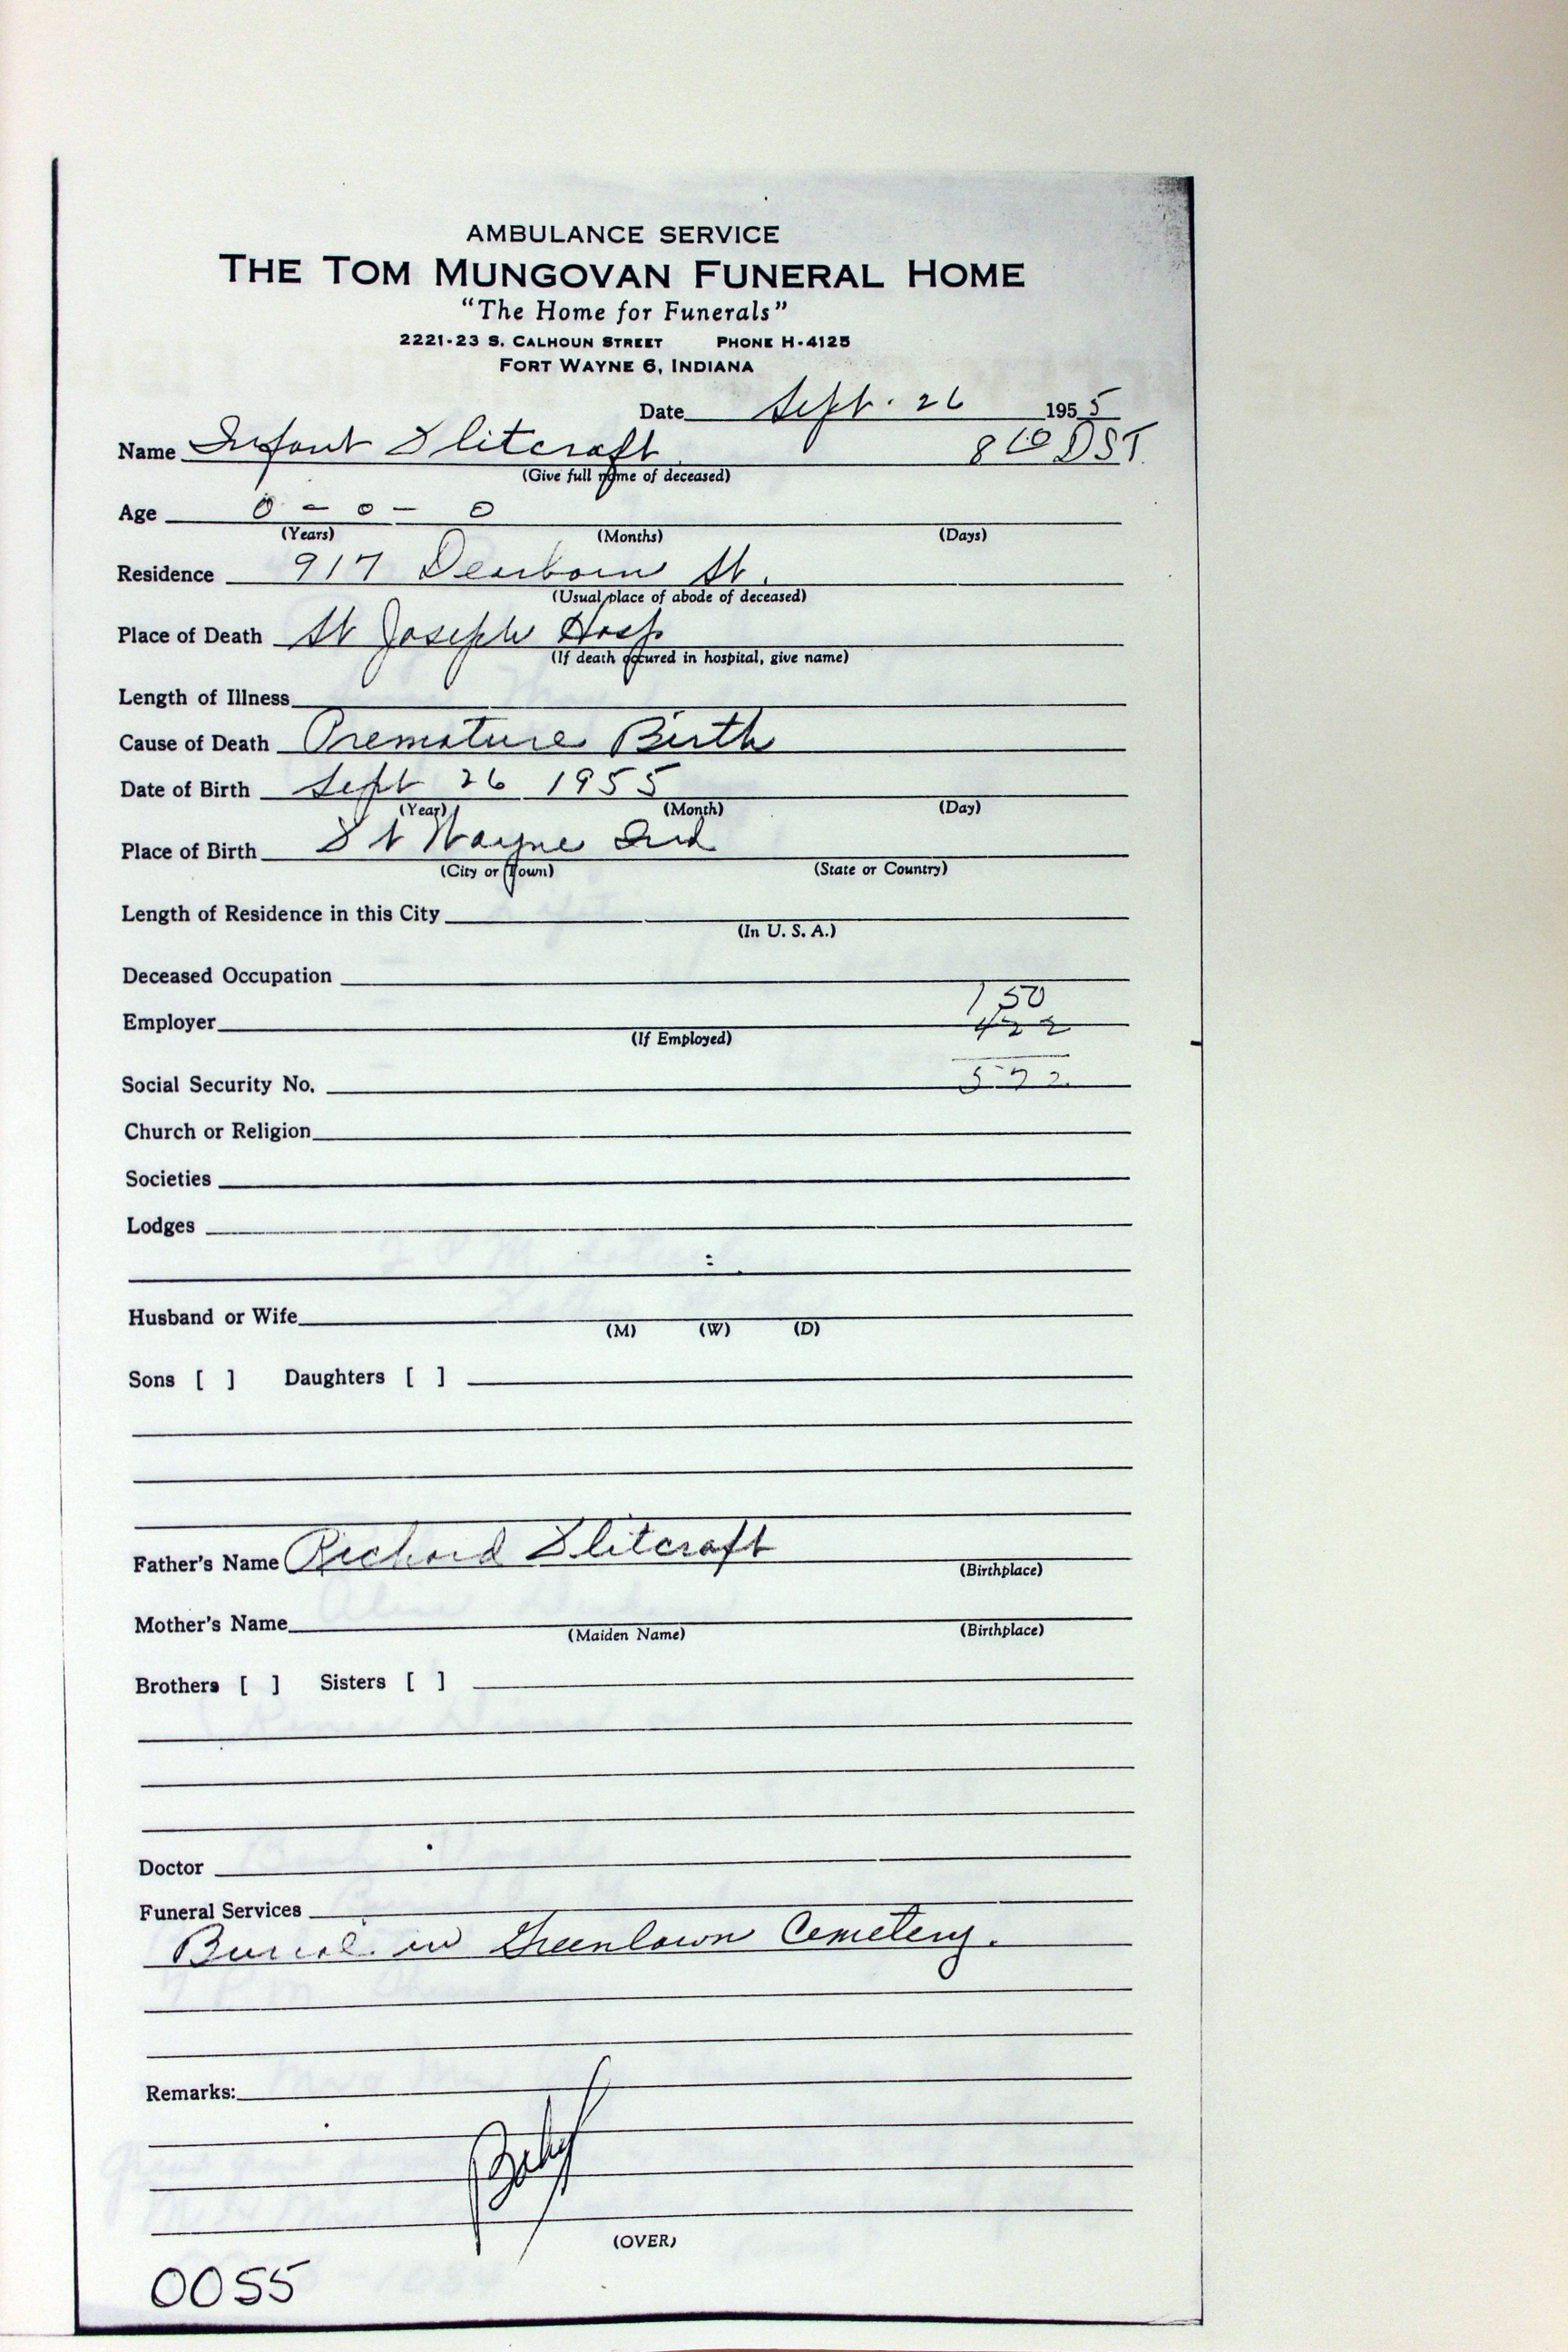 AMBULANCE SERVICE
THE TOM MUNGOVAN FUNERAL HOME
"The Home for Funerals"
2221-23 S. CALHOUN STREET PHONE H-4125
FORT WAYNE 6, INDIANA
Date Sept. 26 1955
Name Infant Flitcraft 8 10 DST.
(Give full name of deceased)
Age 0 - 0 - 0
(Years) (Months) (Days)
Residence 917 Dearborn St.
(Usual place of abode of deceased)
Place of Death St Joseph Hosp
(If death occured in hospital, give name)
Length of Illness
Cause of Death Premature Birth
Date of Birth Sept 26 1955
(Year) (Month) (Day)
Place of Birth Ft Wayne Ind
(City or Town) (State or Country)
Length of Residence in this City
(In U. S. A.)
Deceased Occupation
150
Employer 422
(If Employed)
Social Security No. 572
Church or Religion
Societies
Lodges
Husband or Wife
(M) (W) (D)
Sons [ ] Daughters [ ]
Father's Name Richard Flitcraft
(Birthplace)
Mother's Name
(Maiden Name) (Birthplace)
Brothers [ ] Sisters [ ]
Doctor
Funeral Services
Burial in Greenlawn Cemetery.
Remarks:
Baby
(OVER)
0055